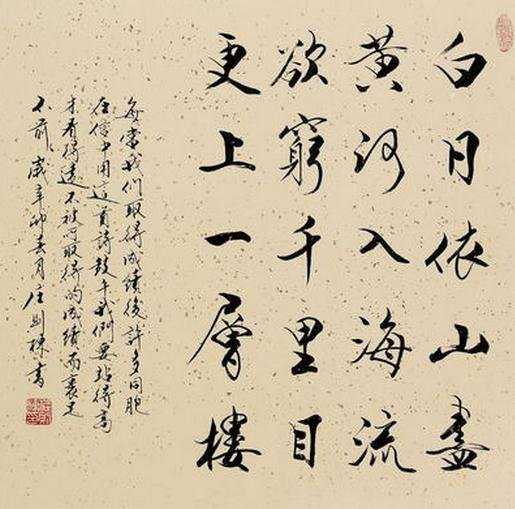 白日依山盡
黄河入海流
欲窮千里目
更上一層樓
每當我們取得成績後許多同胞
在信中用這首詩鼓午我們要站得高
才看得遠不被所取得的成績而裹足
不前 歲辛卯春月庄則棟書